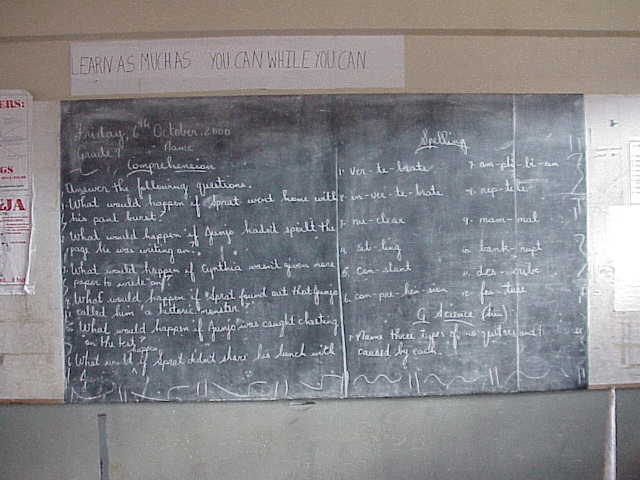 LEARN AS MUCH AS YOU CAN WHILE YOU CAN
ERS:
GS
LJA
Friday, 6th October, 2000
Grade 7 Name
Comprehension
Answer the following questions.
1. What would happen if Sprat went home with
his paint burst?
2. What would happen if Gunjo hadn't spoilt the
page he was writing on?
3. What would happen if Cynthia wasn't given more
paper to write on?
4. What would happen if Sprat found out that Gunjo
called him a
5. What would happen if Gunjo was caught cheating
on the test?
6. What would happen if Sprat didn't share his lunch with
Spelling
1. ver-te-brate
2. in-ver-te-brate
3. nu-clear
4. sib-ling
5. con-stant
6. com-pre-hen-sion
7. am-phi-bi-an
8. rep-tile
9. mam-mal
10. bank-rupt
11. des-cribe
12. fea-ture
G. Science
1. Name three types of
caused by each.